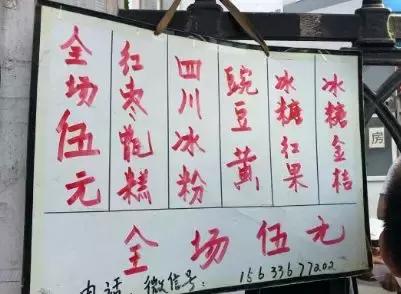 全场伍元
红枣甑糕
四川冰粉
豌豆黄
冰糖红果
冰糖金桔
全场伍元
电话、微信号: 15633677202
房